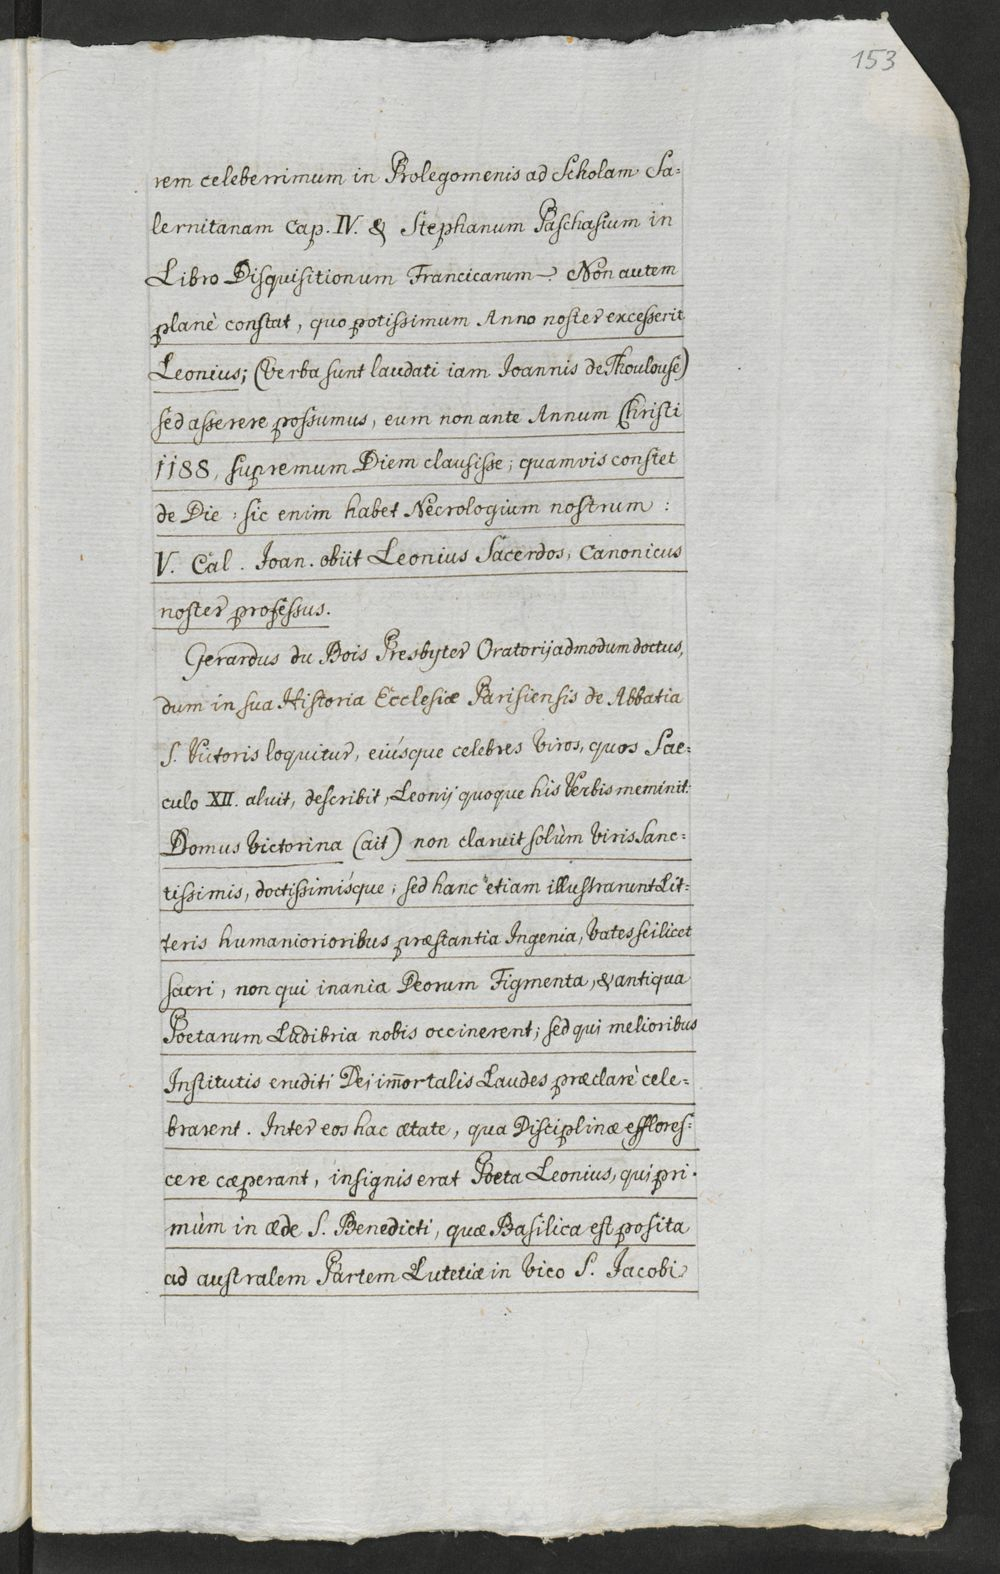 153
rem celeberrimum in Prolegomenis ad Scholam Sa=
lernitanam Cap. IV. & Stephanum Paschasium in
Libro Disquisitionum Francicarum. Non autem
planè constat, quo potissimum Anno noster excesserit
Leonius; (Verba sunt laudati iam Joannis de Thoulouse)
sed asserere possumus, eum non ante Annum Christi
1188, supremum Diem clausisse; quamvis constet
de Die: sic enim habet Necrologium nostrum:
V. Cal. Joan. obiit Leonius Sacerdos, Canonicus
noster professus.
Gerardus du Bois Presbyter Oratorij admodum doctus,
dum in sua Historia Ecclesiæ Parisiensis de Abbatia
S. Victoris loquitur, eiúsque celebres Viros, quos Sae=
culo XII. aluit, describit, Leonij quoque his Verbis meminit:
Domus Victorina (ait) non claruit solùm Viris Sanc=
tissimis, doctissimísque; sed hanc etiam illustrarunt Lit=
teris humaniorioribus præstantia Ingenia, Vates scilicet
sacri, non qui inania Deorum Figmenta, & antiqua
Poetarum Ludibria nobis occinerent; sed qui melioribus
Institutis eruditi Dei im̄ortalis Laudes præclarè cele=
brarent. Inter eos hac ætate, qua Disciplinæ efflores=
cere cæperant, insignis erat Poeta Leonius, qui pri=
mùm in æde S. Benedicti, quæ Basilica est posita
ad australem Partem Lutetiæ in Vico S. Jacobi